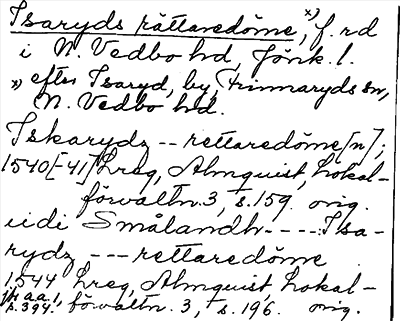 Isaryds rättaredöme, x) f. rd
i N. Vedbo hd, Jönk. l.
x) efter Isaryd, by, Frinnaryds sn,
N. Vedbo hd.
Iskarydz -- rettaredöme[n];
1540[-41] Lreg, Almquist, Lokal-
förvaltn. 3, s. 159. orig.
uidi Smålandh ---- Isa-
rydz --- rettaredöme
1544 Lreg, Almquist Lokal-
jfr a.a. 1, förvaltn. 3, s. 196. orig.
s. 394.